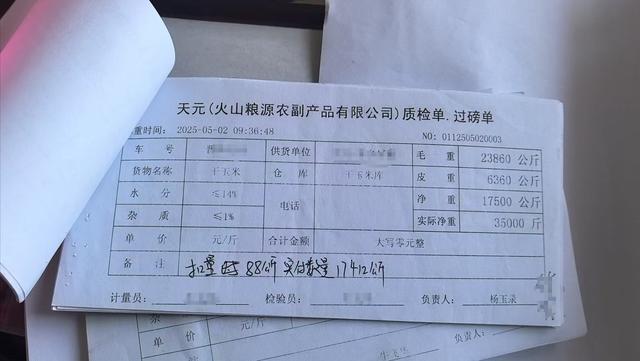 天元(火山粮源农副产品有限公司)质检单.过磅单
重时间: 2025-05-02 09:36:48 NO: 0112505020003
车 号 供货单位 毛 重 23860 公斤
货物名称 干玉米 仓 库 干玉米库 皮 重 6360 公斤
水 分 ≤14% 电话 净 重 17500 公斤
杂 质 ≤1% 实际净重 35000 斤
单 价 元/斤 合计金额 大写零元整
备 注 扣量 88公斤 实付数量 17412公斤
计量员: 检验员: 负责人: 杨玉录
杂
单 价 元/斤